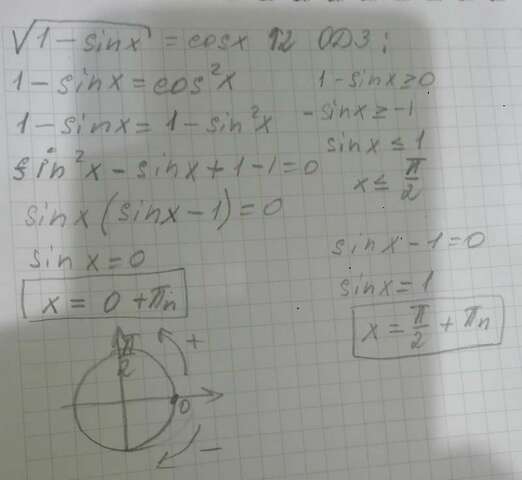 √1-sinx = cosx |2 ОДЗ:
1-sinx = cos²x
1-sinx = 1-sin²x
sin²x - sinx + 1-1 = 0
sinx (sinx-1) = 0
sin x = 0
x = 0 + πn
1-sinx ≥ 0
-sinx ≥ -1
sinx ≤ 1
x ≤ π/2
sinx - 1 = 0
sinx = 1
x = π/2 + πn
π/2
+
0
-